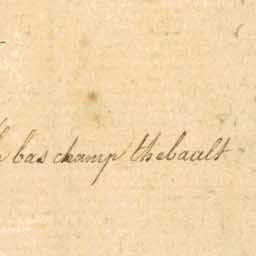 bas champ thebault